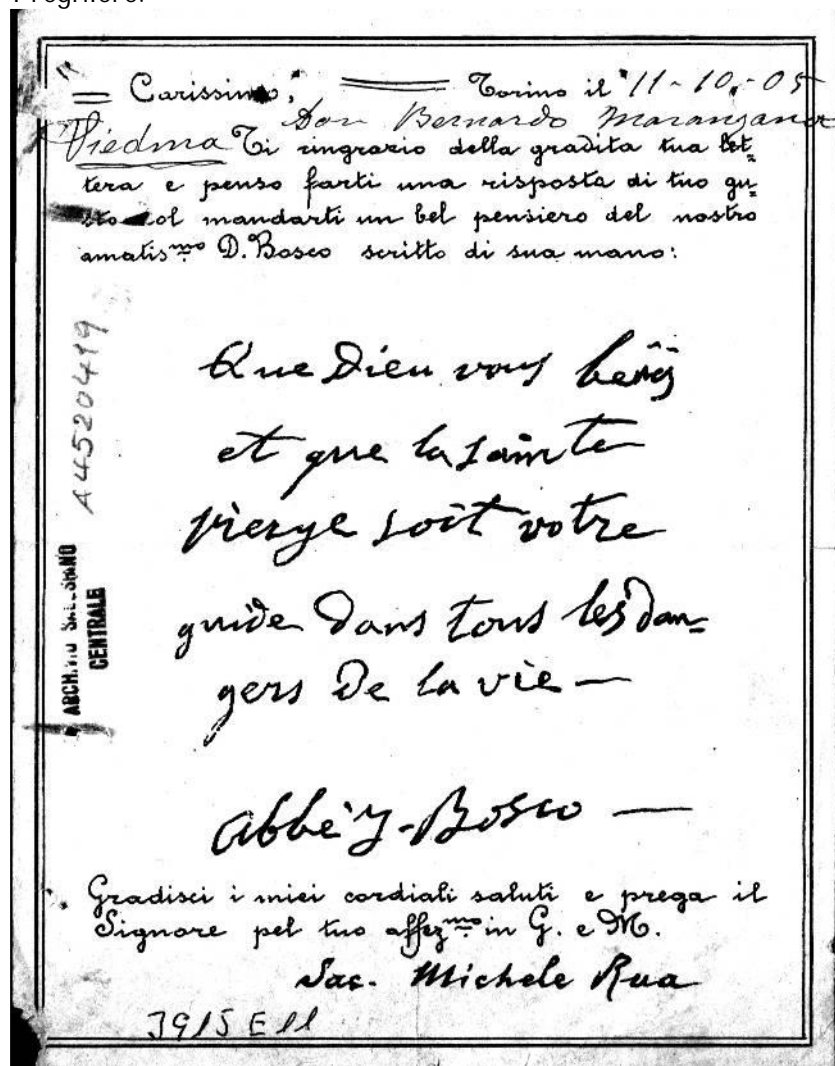 Carissimo, Torino il 11-10-05
Don Bernardo Maranzana
Viedma Ti ringrazio della gradita tua let=
tera e penso farti una risposta di tuo gu=
sto col mandarti un bel pensiero del nostro
amatis.mo D. Bosco scritto di sua mano:
Que Dieu vous
et que la sainte
vierge soit votre
guide dans tous les dan=
gers de la vie —
Abbé J-Bosco —
Gradisci i miei cordiali saluti e prega il
Signore pel tuo affez.mo in G. e M.
Sac. Michele Rua
3915 E11
A4520419
CENTRALE